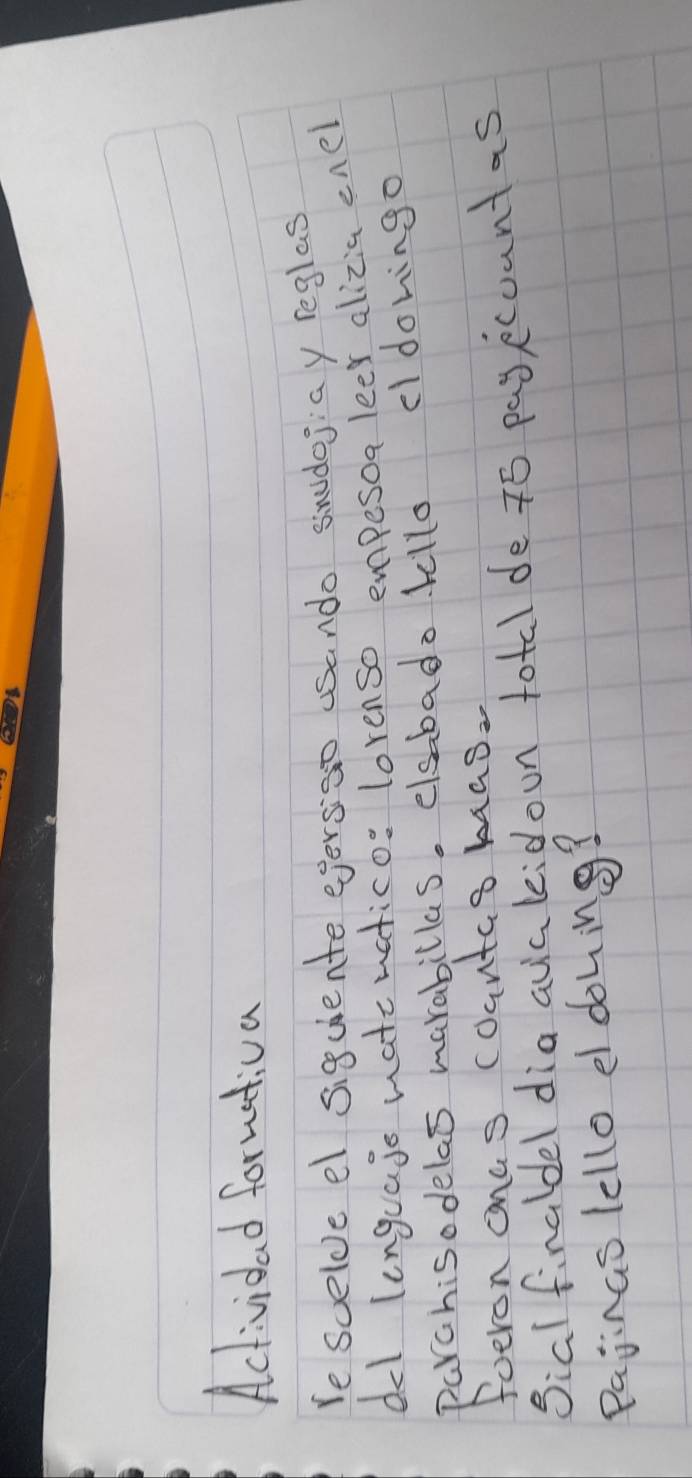 Actividad formativa
resuelve el siguiente ejersisio usando simvdojia y reglas
del lenguaje matematico: lorenso empesoa leer alizia enel
parahiso delas marabillas. elsabado lello el domingo
fueron onas coantas mas.
Sial finaldel dia avia leidoun total de 75 pag ¿cuantas
Pajinas lello el doming?
BIC